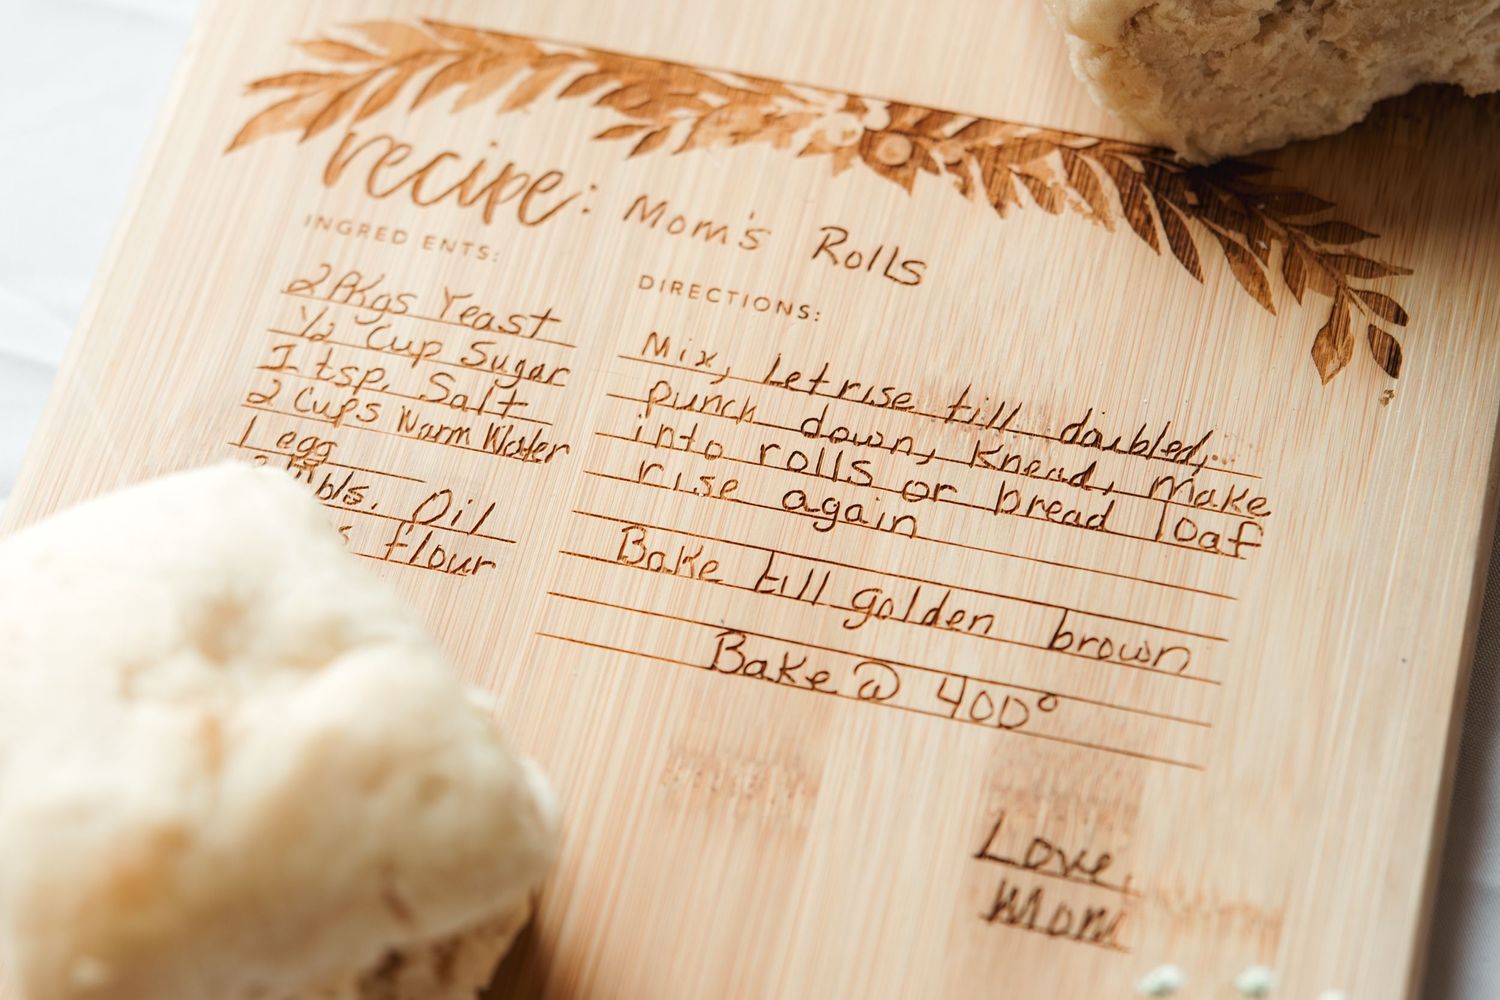 recipe: Mom's Rolls
INGREDIENTS:
2 Pkgs Yeast
1/2 Cup Sugar
1 tsp. Salt
2 Cups Warm Water
1 egg
Tbls. Oil
flour
DIRECTIONS:
Mix, let rise till doubled,
punch down, Knead, make
into rolls or bread loaf
rise again
Bake till golden brown
Bake @ 400°
Love,
Mom